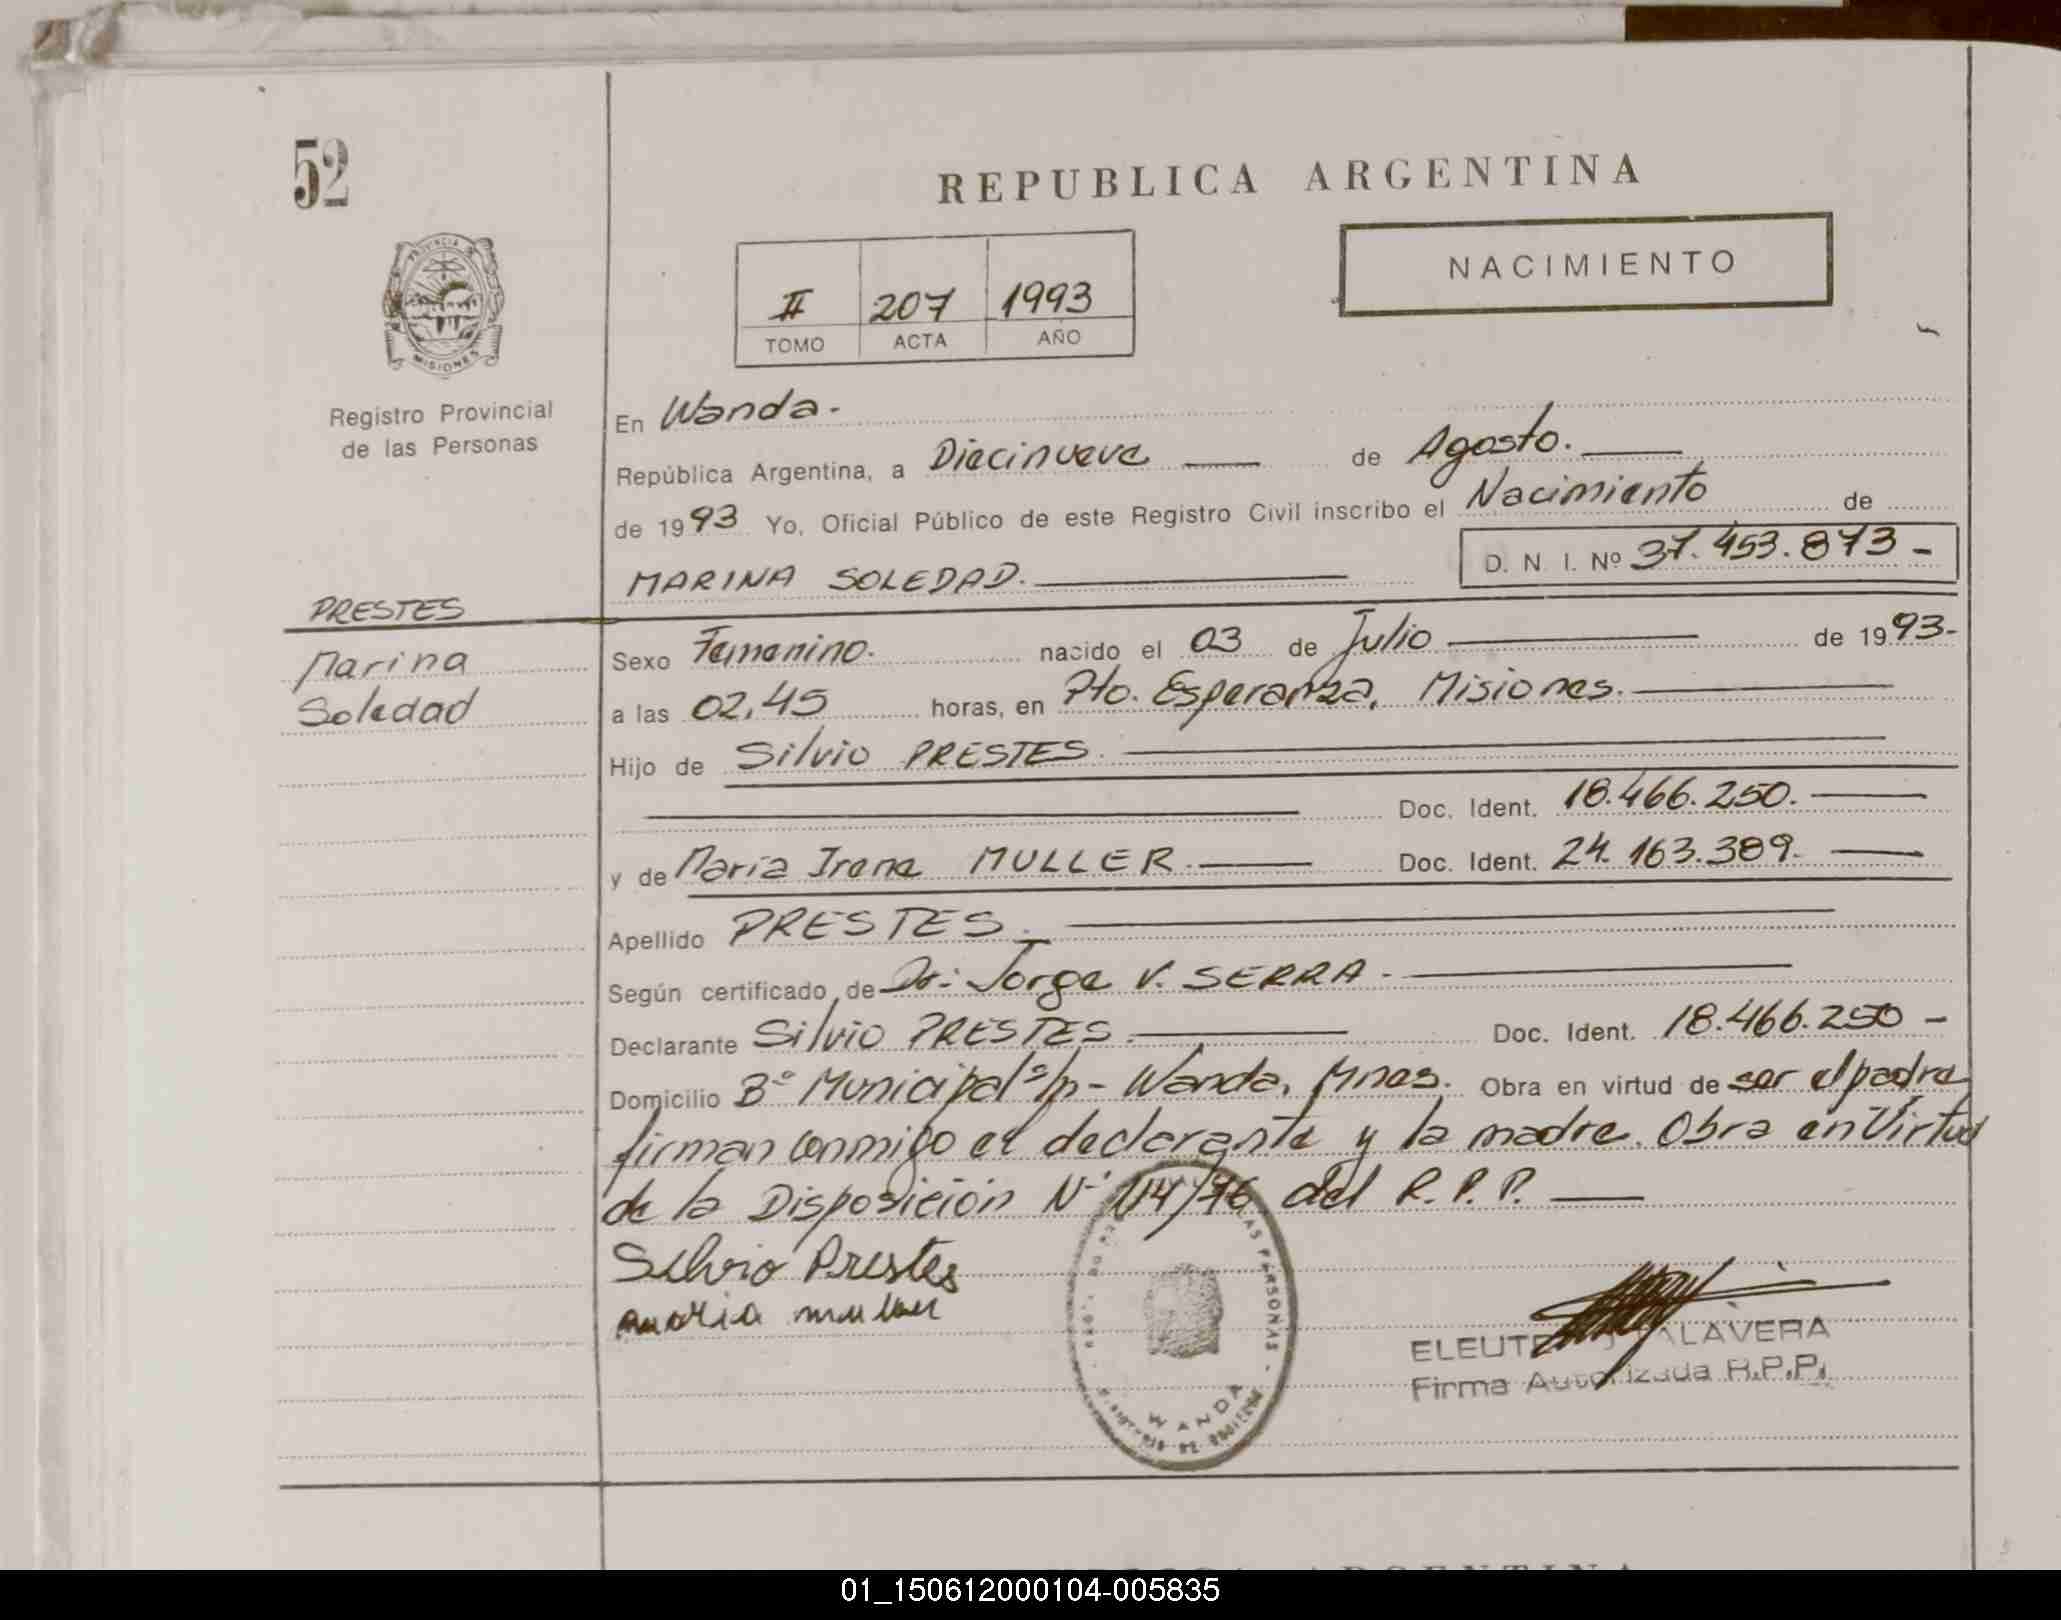 52
REPUBLICA ARGENTINA
NACIMIENTO
II 207 1993
TOMO ACTA AÑO
PROVINCIA DE
MISIONES
Registro Provincial
de las Personas
En Wanda.
República Argentina, a Diecinueve de Agosto.
de 1993 Yo, Oficial Público de este Registro Civil inscribo el Nacimiento de
D. N. I. Nº 37.453.873 -
MARINA SOLEDAD.
PRESTES
Marina
Soledad
Sexo Femenino. nacido el 03 de Julio de 1993-
a las 02,45 horas, en Pto. Esperanza, Misiones.
Hijo de Silvio PRESTES.
Doc. Ident. 18.466.250.
y de Maria Irene MULLER. Doc. Ident. 24.163.389.
Apellido PRESTES.
Según certificado de Dr. Jorge V. SERRA.
Declarante Silvio PRESTES. Doc. Ident. 18.466.250 -
Domicilio Bº Municipal s/n - Wanda, Mnes. Obra en virtud de ser el padre
firman conmigo el declarante y la madre. Obra en Virtud
de la Disposición Nº 114/76 del R.P.P.
Silvio Prestes
maria muller
PERSONAS
WANDA
ALAVERA
Firma Autorizada R.P.P.
ARGENTINA
01_150612000104-005835